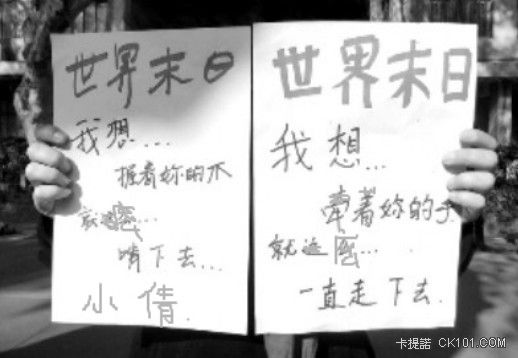 世界末日
我想...
握着妳的爪
就這麼...
啃下去...
小倩.
世界末日
我想...
牽著妳的手
就這麼...
一直走下去.
卡提諾 CK101.COM